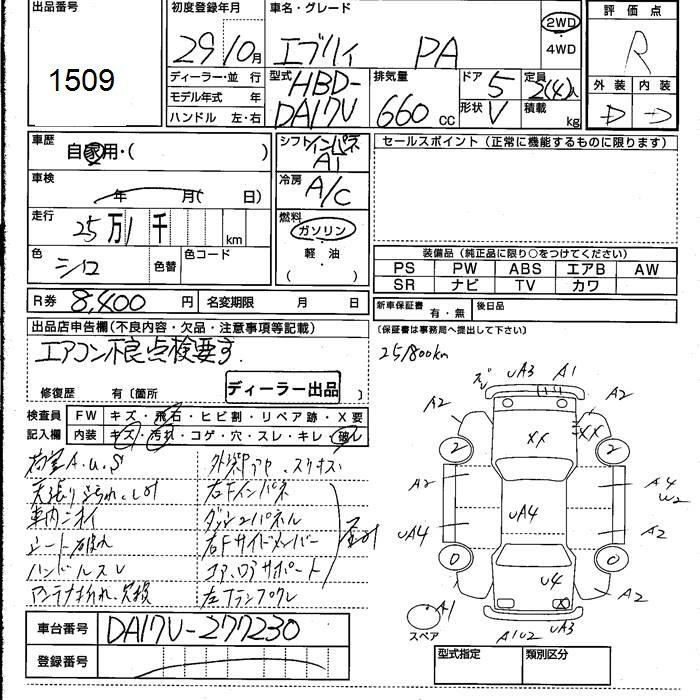 出品番号
1509
初度登録年月
29 10月
車名・グレード
エブリイ PA
2WD
4WD
評価点
R
外装 内装
D D
ディーラー・並行
モデル年式 年
ハンドル 左・右
型式
HBD-
DA17V
排気量
660 cc
ドア 5
形状 V
定員
2(4)人
積載
kg
車歴
自家用・( )
車検
年 月( 日)
走行
25万1千 km
色
シロ
色替
色コード
シフト インパネ
A1
冷房
A/C
燃料
ガソリン
軽油
( )
セールスポイント(正常に機能するものに限ります)
装備品(純正品に限り○をつけてください)
PS PW ABS エアB AW
SR ナビ TV カワ
R券 8,400円 名変期限 月 日
新車保証書 有・無
後日品
(保証書は事務局へ提出して下さい)
出品店申告欄(不良内容・欠品・注意事項等記載)
エアコン不良点検要す
修復歴 有〔箇所 〕
ディーラー出品
251800km
検査員
記入欄
FW キズ・飛石・ヒビ割・リペア跡・X要
内装 キズ・汚れ・コゲ・穴・スレ・キレ・破レ
荷室A.U.S
車内ニオイ
シート破れ
ハンドルスレ
アンテナ折れ、欠損
右Fインパネ
ダッシュパネル
右Fサイドメンバー
コアロアサポート
uA3 A1
A2 A2
XX XX
2 2
A2 A4
W2
uA4 uA4 A2
0 0
U4
A2
A1
スペア
A1U2 uA3
車台番号 DA17V-277230
登録番号
型式指定 類別区分